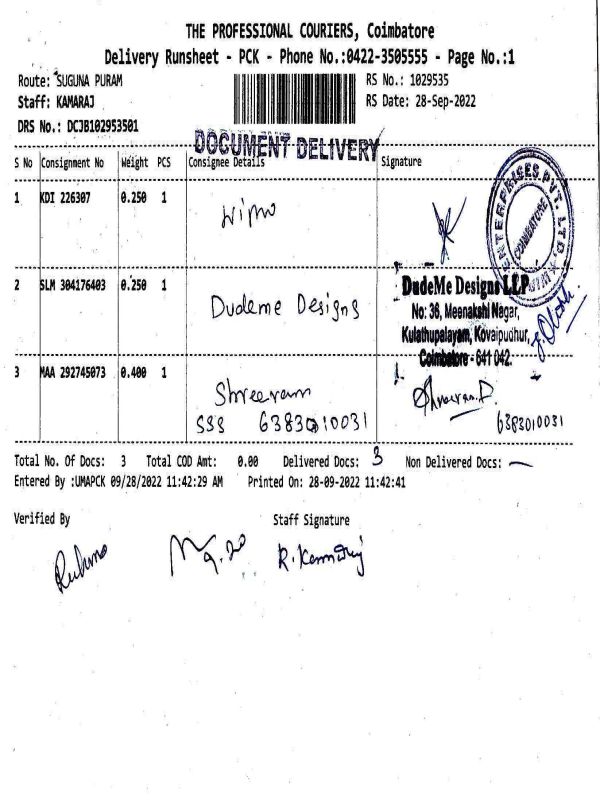 THE PROFESSIONAL COURIERS, Coimbatore
Delivery Runsheet - PCK - Phone No.:0422-3505555 - Page No.:1
Route: SUGUNA PURAM
RS No.: 1029535
Staff: KAMARAJ
RS Date: 28-Sep-2022
DRS No.: DCJB102953501
DOCUMENT DELIVERY
S No Consignment No Weight PCS Consignee Details Signature
1 KDI 226307 0.250 1
ENTERPRISES PVT. LTD.
COIMBATORE
2 SLM 304176403 0.250 1 Dudeme Designs
DudeMe Designs LLP
No: 36, Meenakshi Nagar,
Kulathupalayam, Kovaipudhur,
Coimbatore - 641 042.
3 MAA 292745073 0.400 1 Shreeram
SSS 6383010031
6383010031
Total No. Of Docs: 3 Total COD Amt: 0.00 Delivered Docs: 3 Non Delivered Docs: —
Entered By :UMAPCK 09/28/2022 11:42:29 AM Printed On: 28-09-2022 11:42:41
Verified By Staff Signature